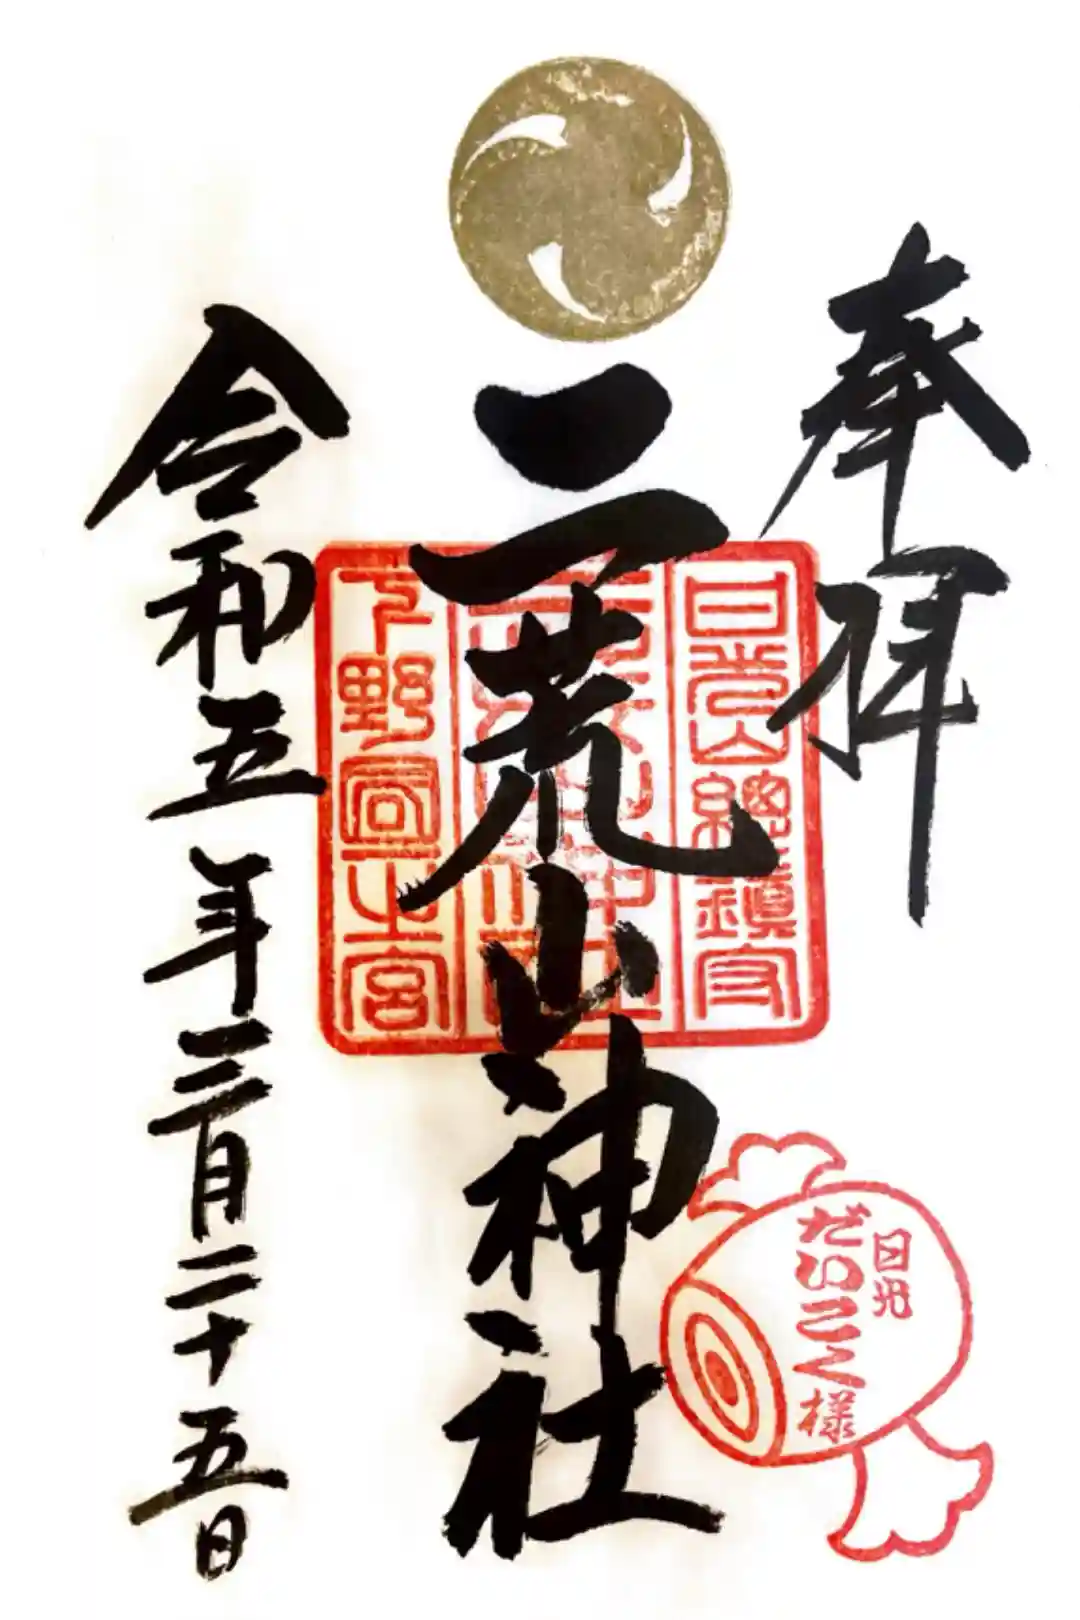 奉拝
日光山總鎮守
二荒山神社
下野国一之宮
令和五年三月二十五日
日光
だいこく様